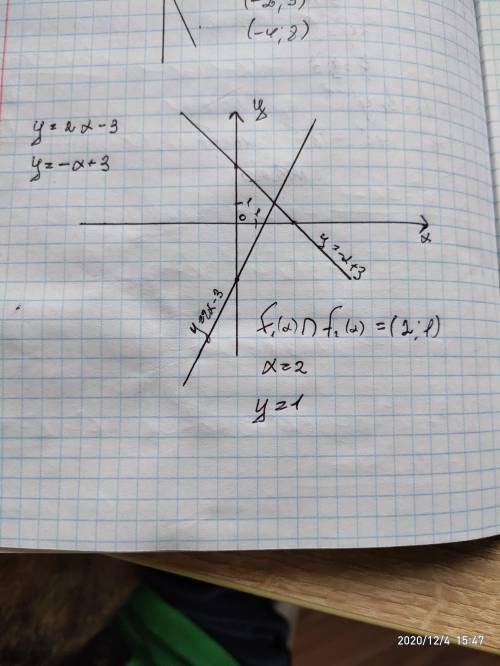 (-2; 5)
(-4; 8)
y
y = 2x - 3
y = -x + 3
1
0 1
x
y = -x + 3
y = 2x - 3
f₁(x) ∩ f₂(x) = (2; 1)
x = 2
y = 1
2020/12/4 15:47